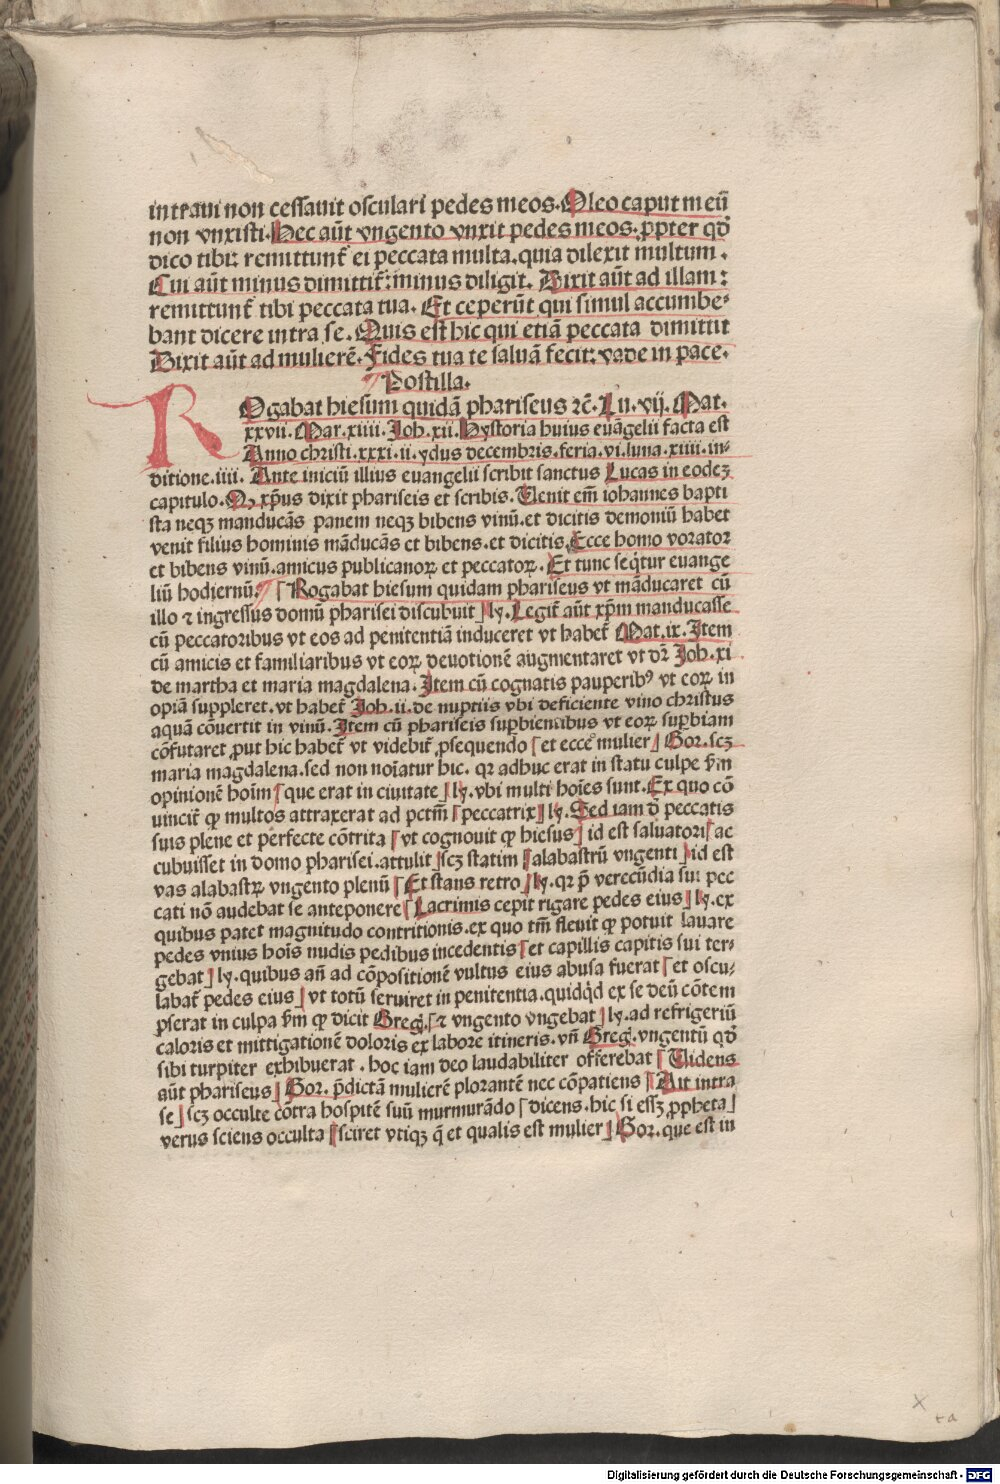 intraui non cessauit osculari pedes meos. Oleo caput meū
non vnxisti. Hec aūt vngento vnxit pedes meos. ꝓpter qḋ
dico tibi: remittunt᷑ ei peccata multa. quia dilexit multum.
Cui aūt minus dimittit᷑: minus diligit. Dixit aūt ad illam:
remittunt᷑ tibi peccata tua. Et ceperūt qui simul accumbe-
bant dicere intra se. Quis est hic qui etiā peccata dimittit
Dixit aūt ad mulierē. Fides tua te saluā fecit: vade in pace.
Postilla.
ROgabat hiesum quidā phariseus ⁊ē. Lu. vij. Mat.
xxvii. Mar. xiiii. Joh. xii. Hystoria huius euāgelii facta est
Anno christi. xxxi. ii. ydus decembris. feria. vi. luna. xiiii. in-
ditione. iiii. Ante iniciū illius euangelii scribit sanctus Lucas in eodeꝫ
capitulo. Qꝫ xp̄us dixit phariseis et scribis. Uenit em̄ iohannes bapti
sta neqꝫ manducās panem neqꝫ bibens vinū. et dicitis demoniū habet
venit filius hominis māducās et bibens. et dicitis. Ecce homo vorator
et bibens vinū. amicus publicanoꝝ et peccatoꝝ. Et tunc seqt᷑ur euange
liū hodiernū. ¶ [ Rogabat hiesum quidam phariseus vt māducaret cū
illo ⁊ ingressus domū pharisei discubuit ] ly. Legit᷑ aūt xp̄m manducasse
cū peccatoribus vt eos ad penitentiā induceret vt habet᷑ Mat. ix. Item
cū amicis et familiaribus vt eoꝝ deuotionē augmentaret vt dr̄ Joh. xi
de martha et maria magdalena. Item cū cognatis pauperibꝰ vt eoꝝ in
opiā suppleret. vt habet᷑ Joh. ii. de nuptiis vbi deficiente vino christus
aquā cōuertit in vinū. Item cū phariseis suꝑbientibus vt eoꝝ suꝑbiam
cōfutaret ꝓut hic habet᷑ vt videbit᷑ ꝓsequendo [ et ecce mulier ] Gor. scꝫ
maria magdalena. sed non noīatur hic. qꝛ adhuc erat in statu culpe ẜm
opinionē hoīm [ que erat in ciuitate ] ly. vbi multi hoīes sunt. Ex quo cō
uincit᷑ ꝙ multos attraxerat ad pctm̄ [ peccatrix ] ly. Sed iam ḋ peccatis
suis plene et perfecte cōtrita [ vt cognouit ꝙ hiesus ] id est saluatori [ ac
cubuisset in domo pharisei. attulit ] scꝫ statim [ alabastrū vngenti ] id est
vas alabastꝝ vngento plenū [ Et stans retro ] ly. qꝛ p̄ verecūdia sui pec
cati nō audebat se anteponere [ Lacrimis cepit rigare pedes eius ] ly. ex
quibus patet magnitudo contritionis. ex quo tm̄ fleuit ꝙ potuit lauare
pedes vnius hoīs nudis pedibus incedentis [ et capillis capitis sui ter-
gebat ] ly. quibus an̄ ad cōpositionē vultus eius abusa fuerat [ et oscu-
labat᷑ pedes eius ] vt totū seruiret in penitentia. quidqḋ ex se deū cōtem
pserat in culpa ẜm ꝙ dicit Greg. [ ⁊ vngento vngebat ] ly. ad refrigeriū
caloris et mittigationē doloris ex labore itineris. vn̄ Greg. vngentū qḋ
sibi turpiter exhibuerat. hoc iam deo laudabiliter offerebat [ Uidens
aūt phariseus ] Gor. p̄dictā mulierē plorantē nec cōpatiens [ Ait intra
se ] scꝫ occulte cōtra hospitē suū murmurādo [ dicens. hic si essꝫ ꝓpheta ]
verus sciens occulta [ sciret vtiqꝫ q̄ et qualis est mulier ] Gor. que est in
x
ta
Digitalisierung gefördert durch die Deutsche Forschungsgemeinschaft - DFG